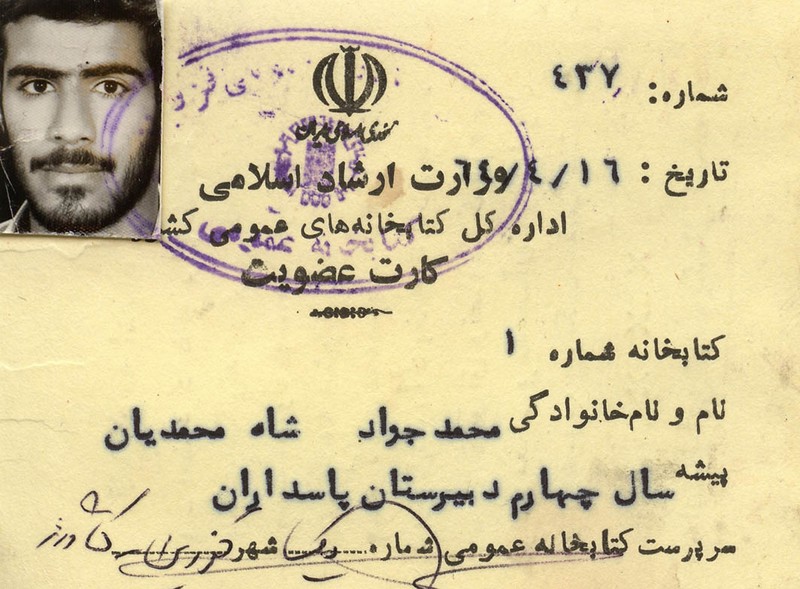 شماره: ٤٣٧
جمهوری اسلامی ایران
تاریخ: ٦٤/٤/١٦
وزارت ارشاد اسلامی
اداره کل کتابخانه‌های عمومی کشور
کارت عضویت
کتابخانه شماره ١
نام و نام‌خانوادگی محمد جواد شاه محمدیان
پیشه سال چهارم دبیرستان پاسداران
سرپرست کتابخانه عمومی شماره یک شهر